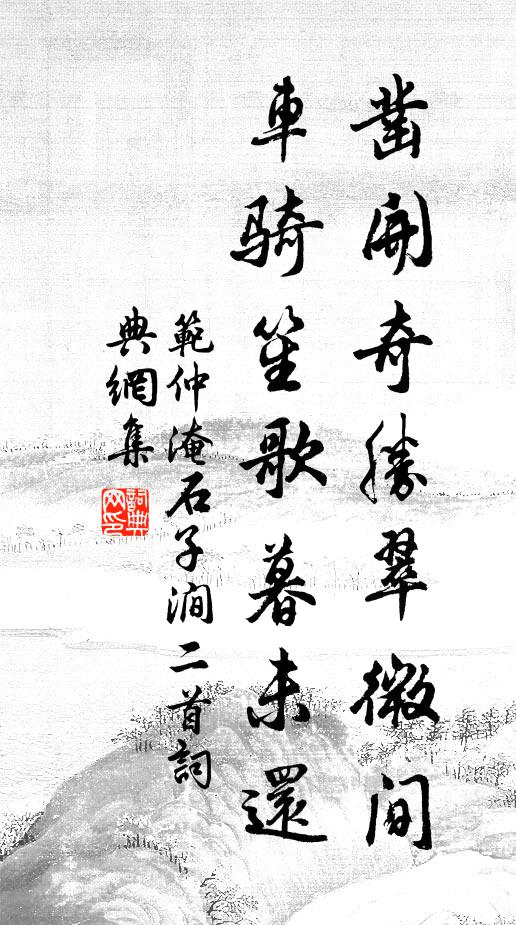 凿開奇勝翠微间
車骑笙歌暮未還
範仲淹石子澗二首詞
典網集
詞典網印